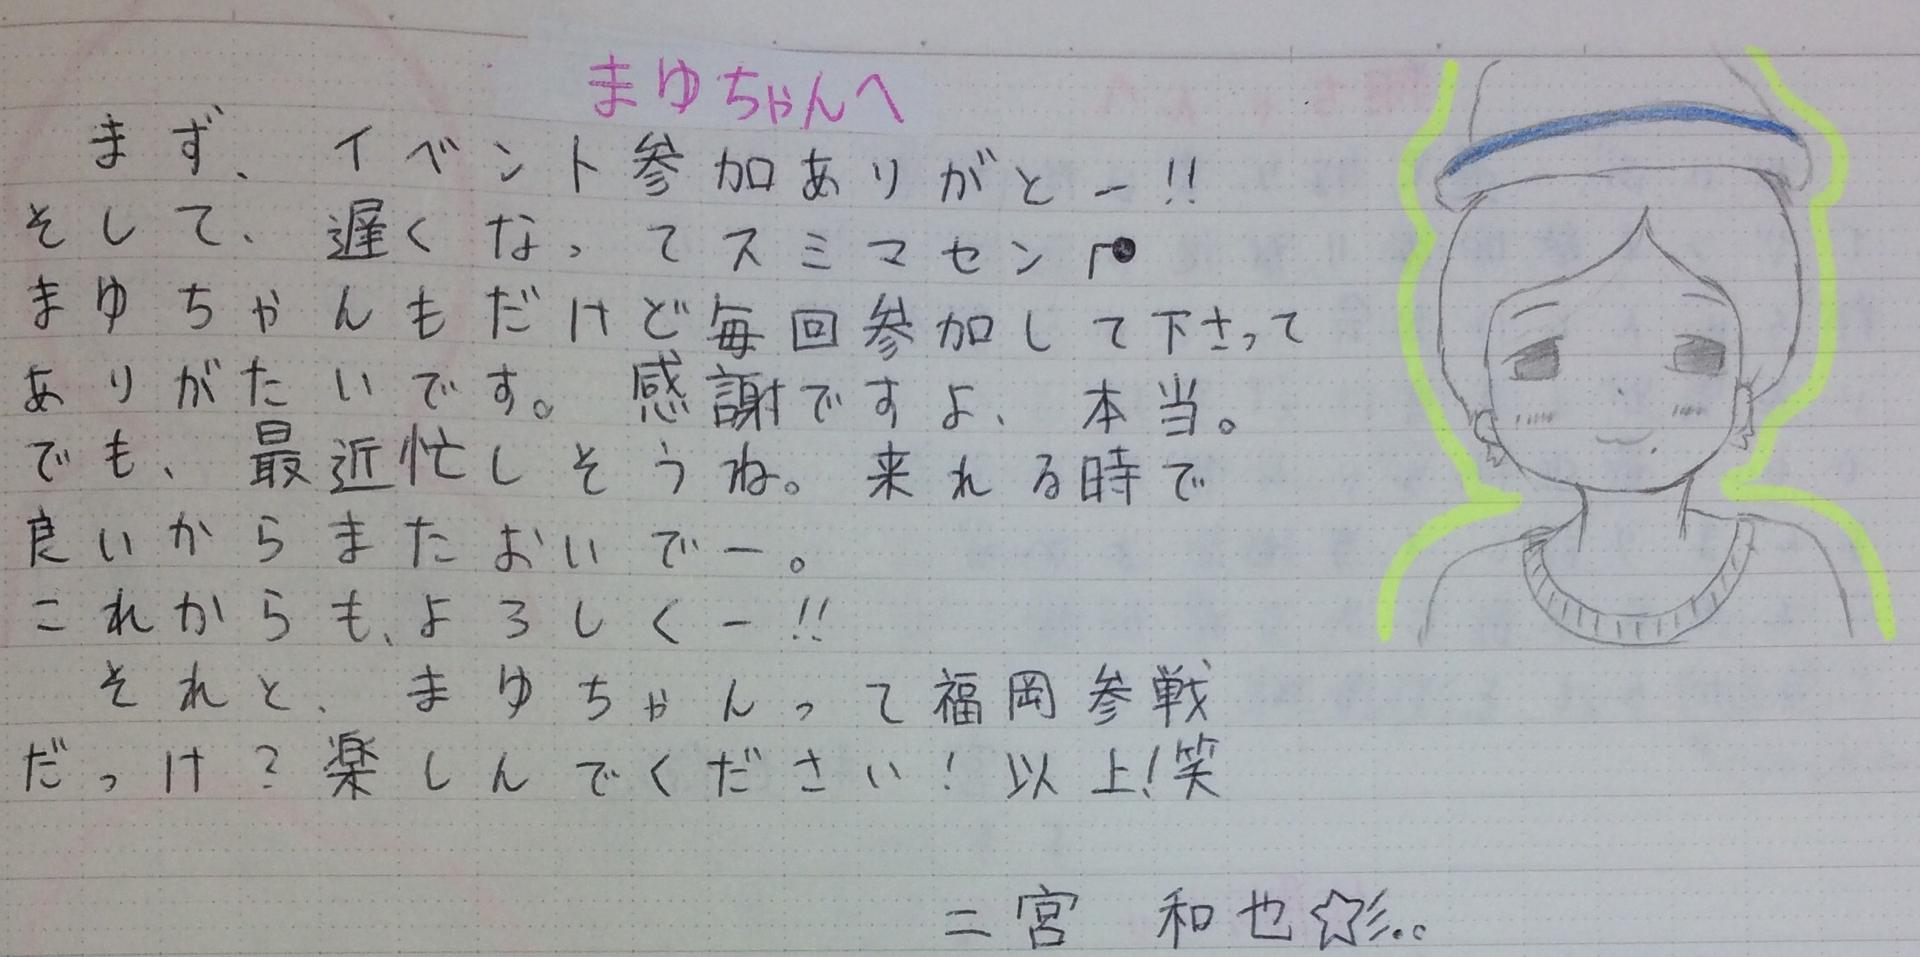 まゆちゃんへ
まず、イベント参加ありがとー!!
そして、遅くなってスミマセン
まゆちゃんもだけど毎回参加して下さって
ありがたいです。感謝ですよ、本当。
でも、最近忙しそうね。来れる時で
良いからまたおいでー。
これからも、よろしくー!!
それと、まゆちゃんって福岡参戦
だっけ?楽しんでください!以上!笑
二宮 和也☆彡..